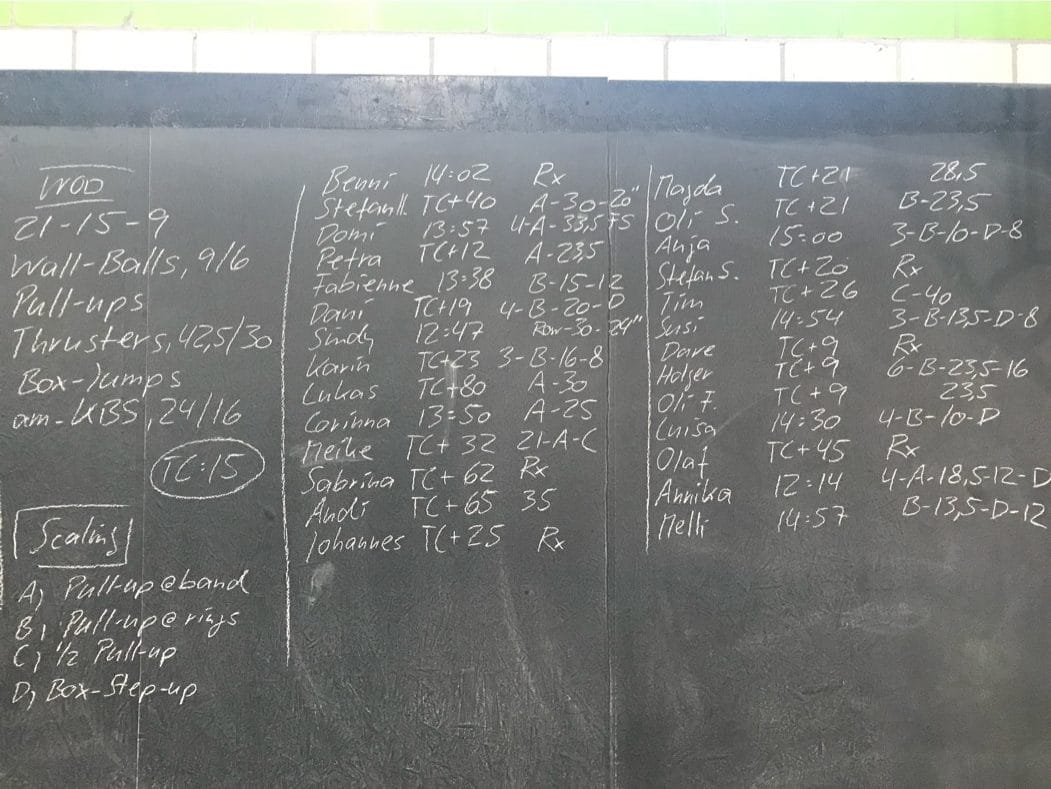 WOD
21-15-9
Wall-Balls, 9/6
Pull-ups
Thrusters, 42,5/30
Box-Jumps
am. KBS, 24/16
TC:15
Scaling
A) Pull-up@band
B) Pull-up@rings
C) 1/2 Pull-up
D) Box-Step-up
Benni 14:02 Rx
TC+40 A-30-20"
Domi 13:57 4-A-33,5 FS
Petra TC+12 A-23,5
Fabienne 13:38 B-15-12
Dani TC+19 4-B-20-D
Sindy 12:47 Row-30-24"
Karin TC+23 3-B-16-8
Lukas TC+80 A-30
Corinna 13:50 A-25
Meike TC+32 21-A-C
Sabrina TC+62 Rx
Andi TC+65 35
Johannes TC+25 Rx
Magda TC+21 28,5
Oli S. TC+21 B-23,5
Anja 15:00 3-B-10-D-8
Stefan S. TC+20 Rx
Tim TC+26 C-40
Susi 14:54 3-B-13,5-D-8
Dave TC+9 Rx
Holger TC+9 6-B-23,5-16
Oli F. TC+9 23,5
Luisa 14:30 4-B-10-D
Olaf TC+45 Rx
Annika 12:14 4-A-18,5-12-D
Melli 14:57 B-13,5-D-12